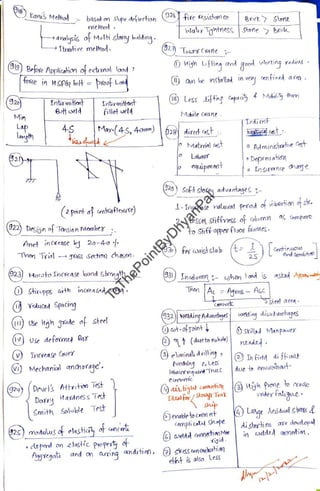 918 Kani's Method :- based on Slope deflection method.
→ analysis of Multi storey building.
→ Iterative method.
919 Before Application of external load ?
force in HSFG bolt = Proof Load
920 Intermittent Butt weld
Intermittent fillet weld
Min Lap length
4S
Max (4S, 40mm)
921
(2 point of contraflexure)
922 Design of Tension Member :-
Anet increase by 20-40 %
Then Trial → gross section chosen.
923 How to Increase bond strength
① Stirrups with increased
② reduced spacing
③ Use high grade of steel
④ Use deformed Bar
⑤ Increase Cover
⑥ Mechanical anchorage.
924 Devel's Attrition Test
Dorry Hardness Test
Smith Soluble Test
925 modulus of elasticity of concrete
• depend on elastic property of Aggregate and on curing condition.
926 fire resistance Brick > Stone
Water Tightness Stone > Brick
927 Tower Crane :-
① High Lifting and good working radius.
② Can be installed in very confined area.
③ Less lifting capacity & Mobility than Mobile crane
928 direct cost :-
• Material cost
• Labour
• equipment
Indirect cost :-
• Administrative cost
• Depreciation
• Insurance charge
929 Soft storey advantages :-
1- Increase natural period of vibration of str.
stiffness of column as compare to stiff upper floor frames.
930 For Waist slab
t = l/25
Continuous
931 Inelastic :- when load is asked
Then AL = Agross - Asc
concrete
steel area.
932 Welding Advantages
① Cut-of joint ↓
② η ↑ (due to no hole)
③ eliminate drilling, punching & Less Manpower required Thus economic
④ air tight connection
ship
⑤ enable to connect complicated shape
⑥ welded connection More rigid.
⑦ stress concentration effect is also less
welding disadvantages
① Skilled Manpower needed.
② In field difficult due to environment.
③ High prone to crack under fatigue.
④ Large Residual stress & distortion are developed in welded connection.
ToThePointByDhyanpal